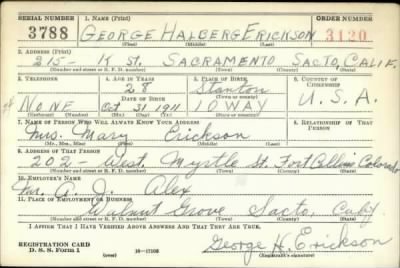 SERIAL NUMBER 1. NAME (Print) ORDER NUMBER
3788 GEORGE HALBERG ERICKSON 3120
(First) (Middle) (Last)
2. ADDRESS (Print)
215- K St. SACRAMENTO SACTO, CALIF.
(Number and street or R. F. D. number) (Town) (County) (State)
3. TELEPHONE 4. AGE IN YEARS 5. PLACE OF BIRTH 6. COUNTRY OF CITIZENSHIP
28 Stanton
DATE OF BIRTH (Town or county)
NONE Oct 31 1911 IOWAY U.S.A.
(Exchange) (Number) (Mo.) (Day) (Yr.) (State or country)
7. NAME OF PERSON WHO WILL ALWAYS KNOW YOUR ADDRESS 8. RELATIONSHIP OF THAT PERSON
Mrs. Mary Erickson
(Mr., Mrs., Miss) (First) (Middle) (Last)
9. ADDRESS OF THAT PERSON
202- West. Myrtle St. Fort Collins Colorado
(Number and street or R. F. D. number) (Town) (County) (State)
10. EMPLOYER'S NAME
Mr. A. J. Alex
11. PLACE OF EMPLOYMENT OR BUSINESS
Walnut Grove Sacto, Calif.
(Number and street or R. F. D. number) (Town) (County) (State)
I AFFIRM THAT I HAVE VERIFIED ABOVE ANSWERS AND THAT THEY ARE TRUE.
REGISTRATION CARD
D. S. S. Form 1 (over) 16—17105
George H. Erickson
(Registrant's signature)